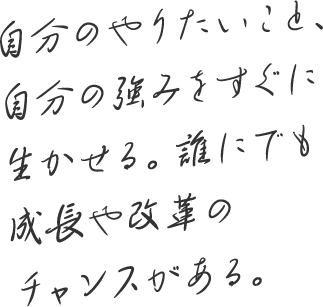 自分のやりたいこと、
自分の強みをすぐに
生かせる。誰にでも
成長や改革の
チャンスがある。